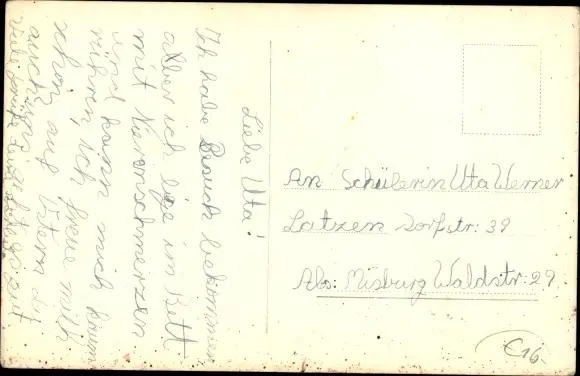 Liebe Uta!
Ich habe Besuch bekommen
aber ich lige im Bett
mit Nierenschmerzen
und kann mich kaum
rühren, ich freue mich
schon auf Ostern du
auch? uns geht es gut
Viele
An Schülerin Uta Werner
Latzen Dorfstr: 39
Abs: Misburg Waldstr: 29
€16